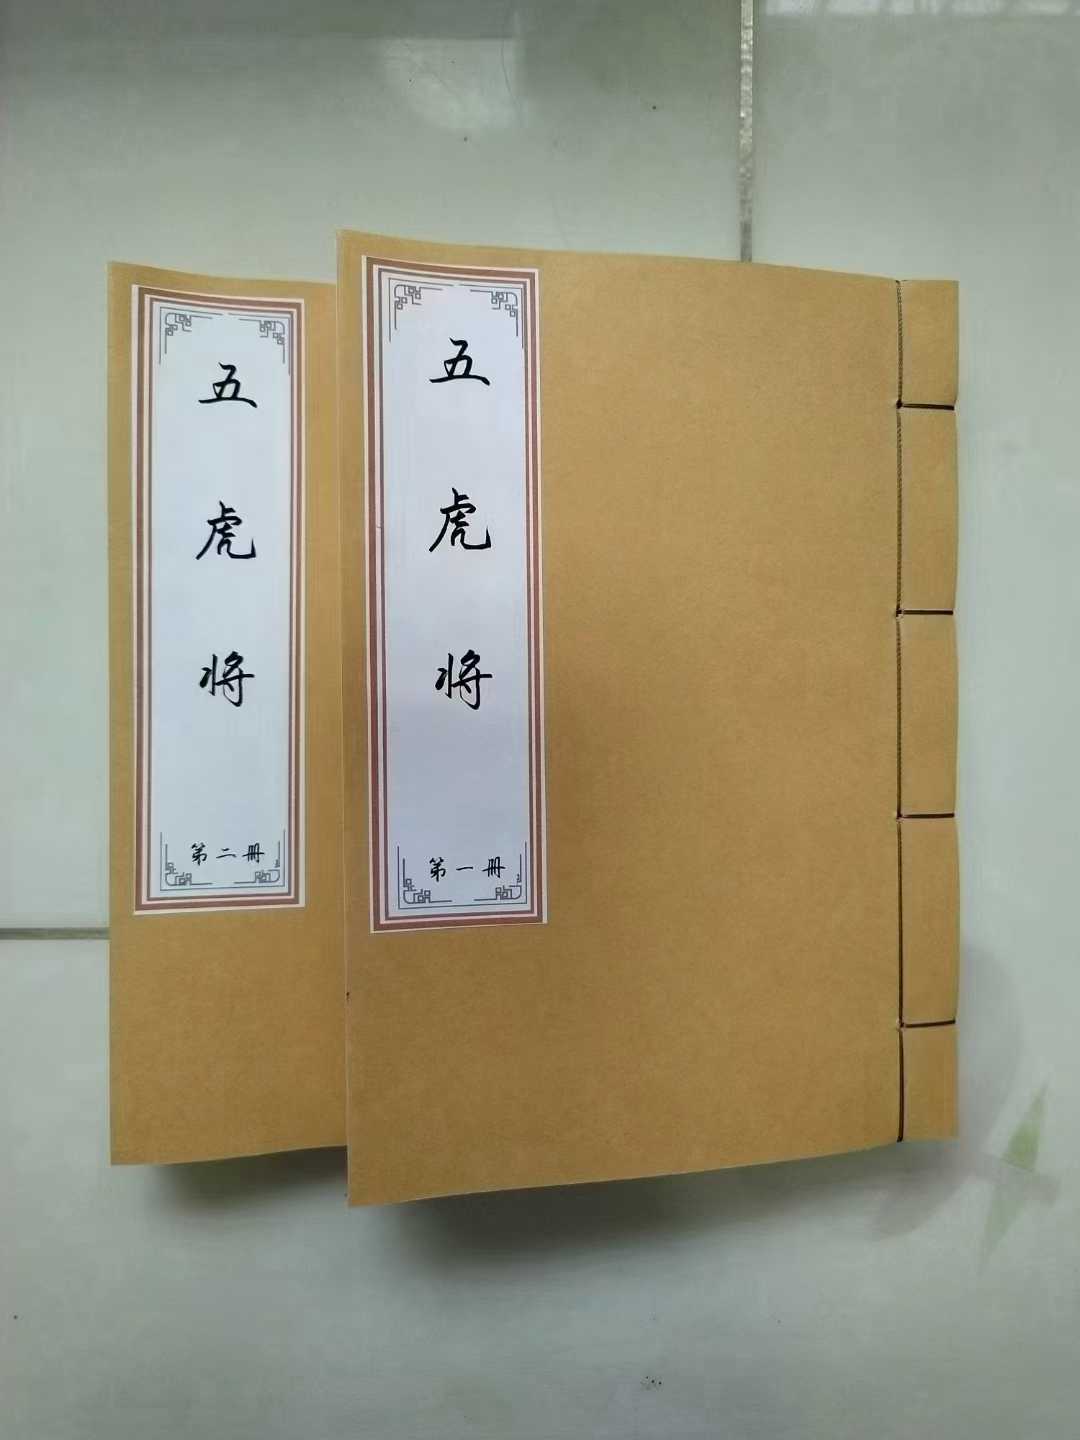 五虎将
第二册
五虎将
第一册